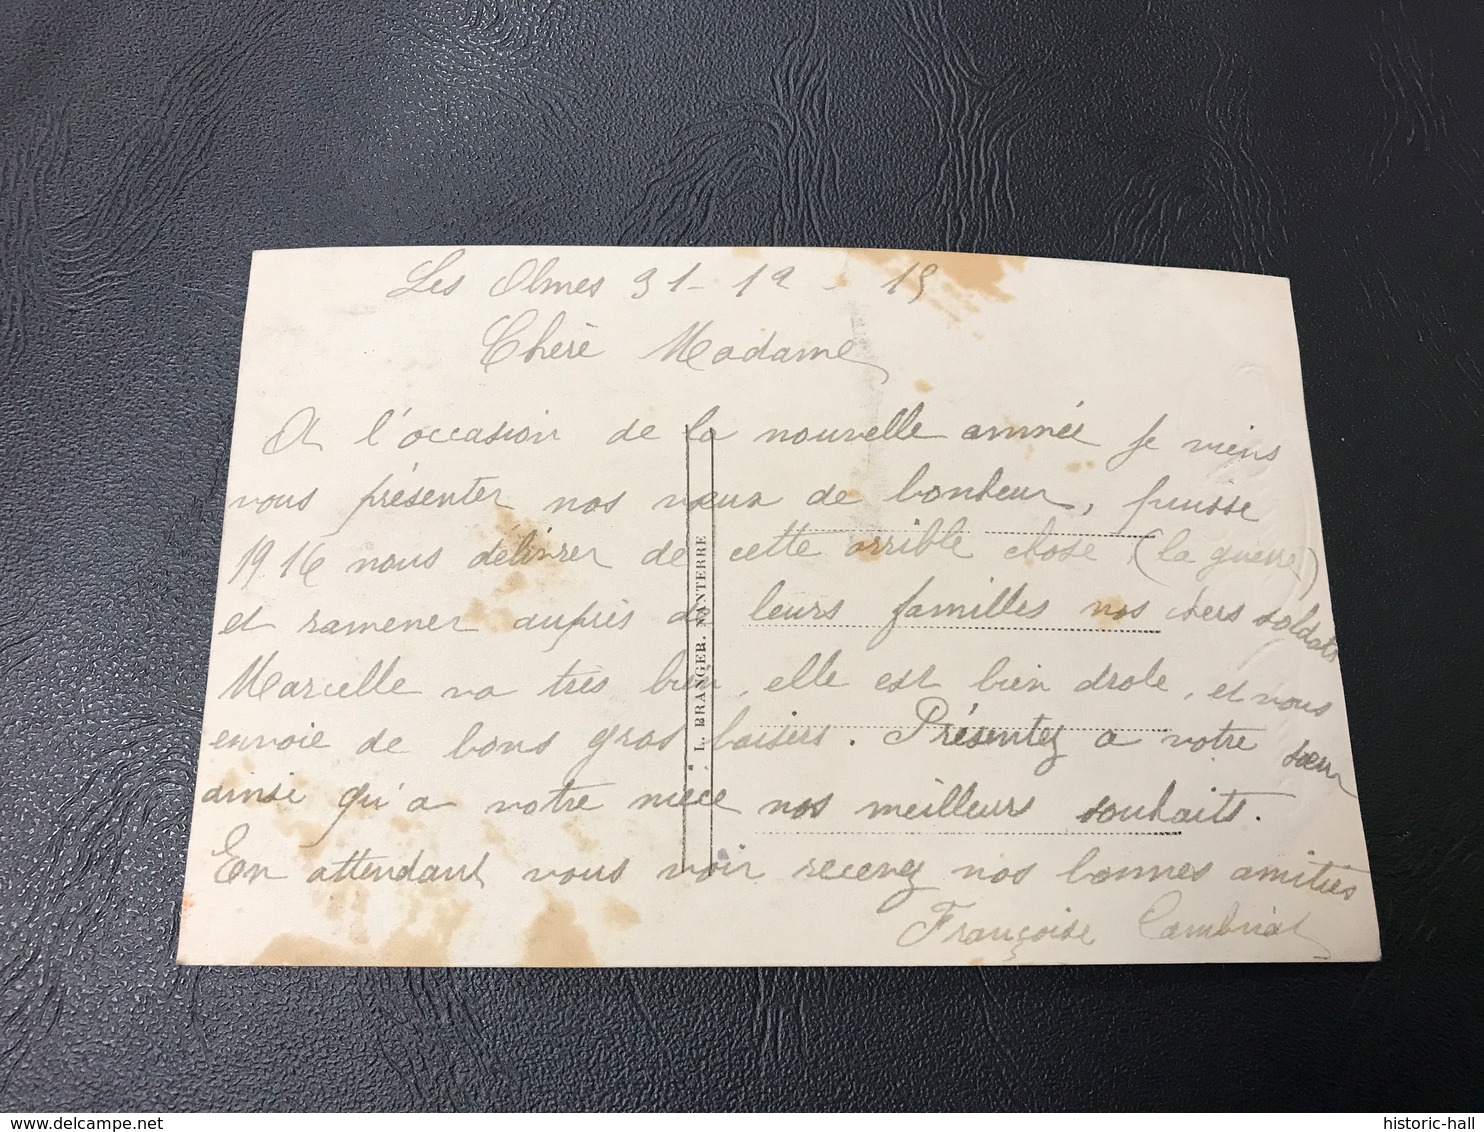 Les Olmes 31-12-15
Chère Madame
A l'occasion de la nouvelle année je viens
vous présenter nos vœux de bonheur, puisse
1916 nous délivrer de cette orrible chose (la guerre)
et ramener auprès de leurs familles nos chers soldats
Marcelle va très bien, elle est bien drole, et vous
envoie de bons gros baisers. Présentez a votre sœur
ainsi qu'a votre niece nos meilleurs souhaits.
En attendant vous voir recevez nos bonnes amitiés
Françoise
L. BRANGER. NANTERRE
historic-hall
delcampe.net